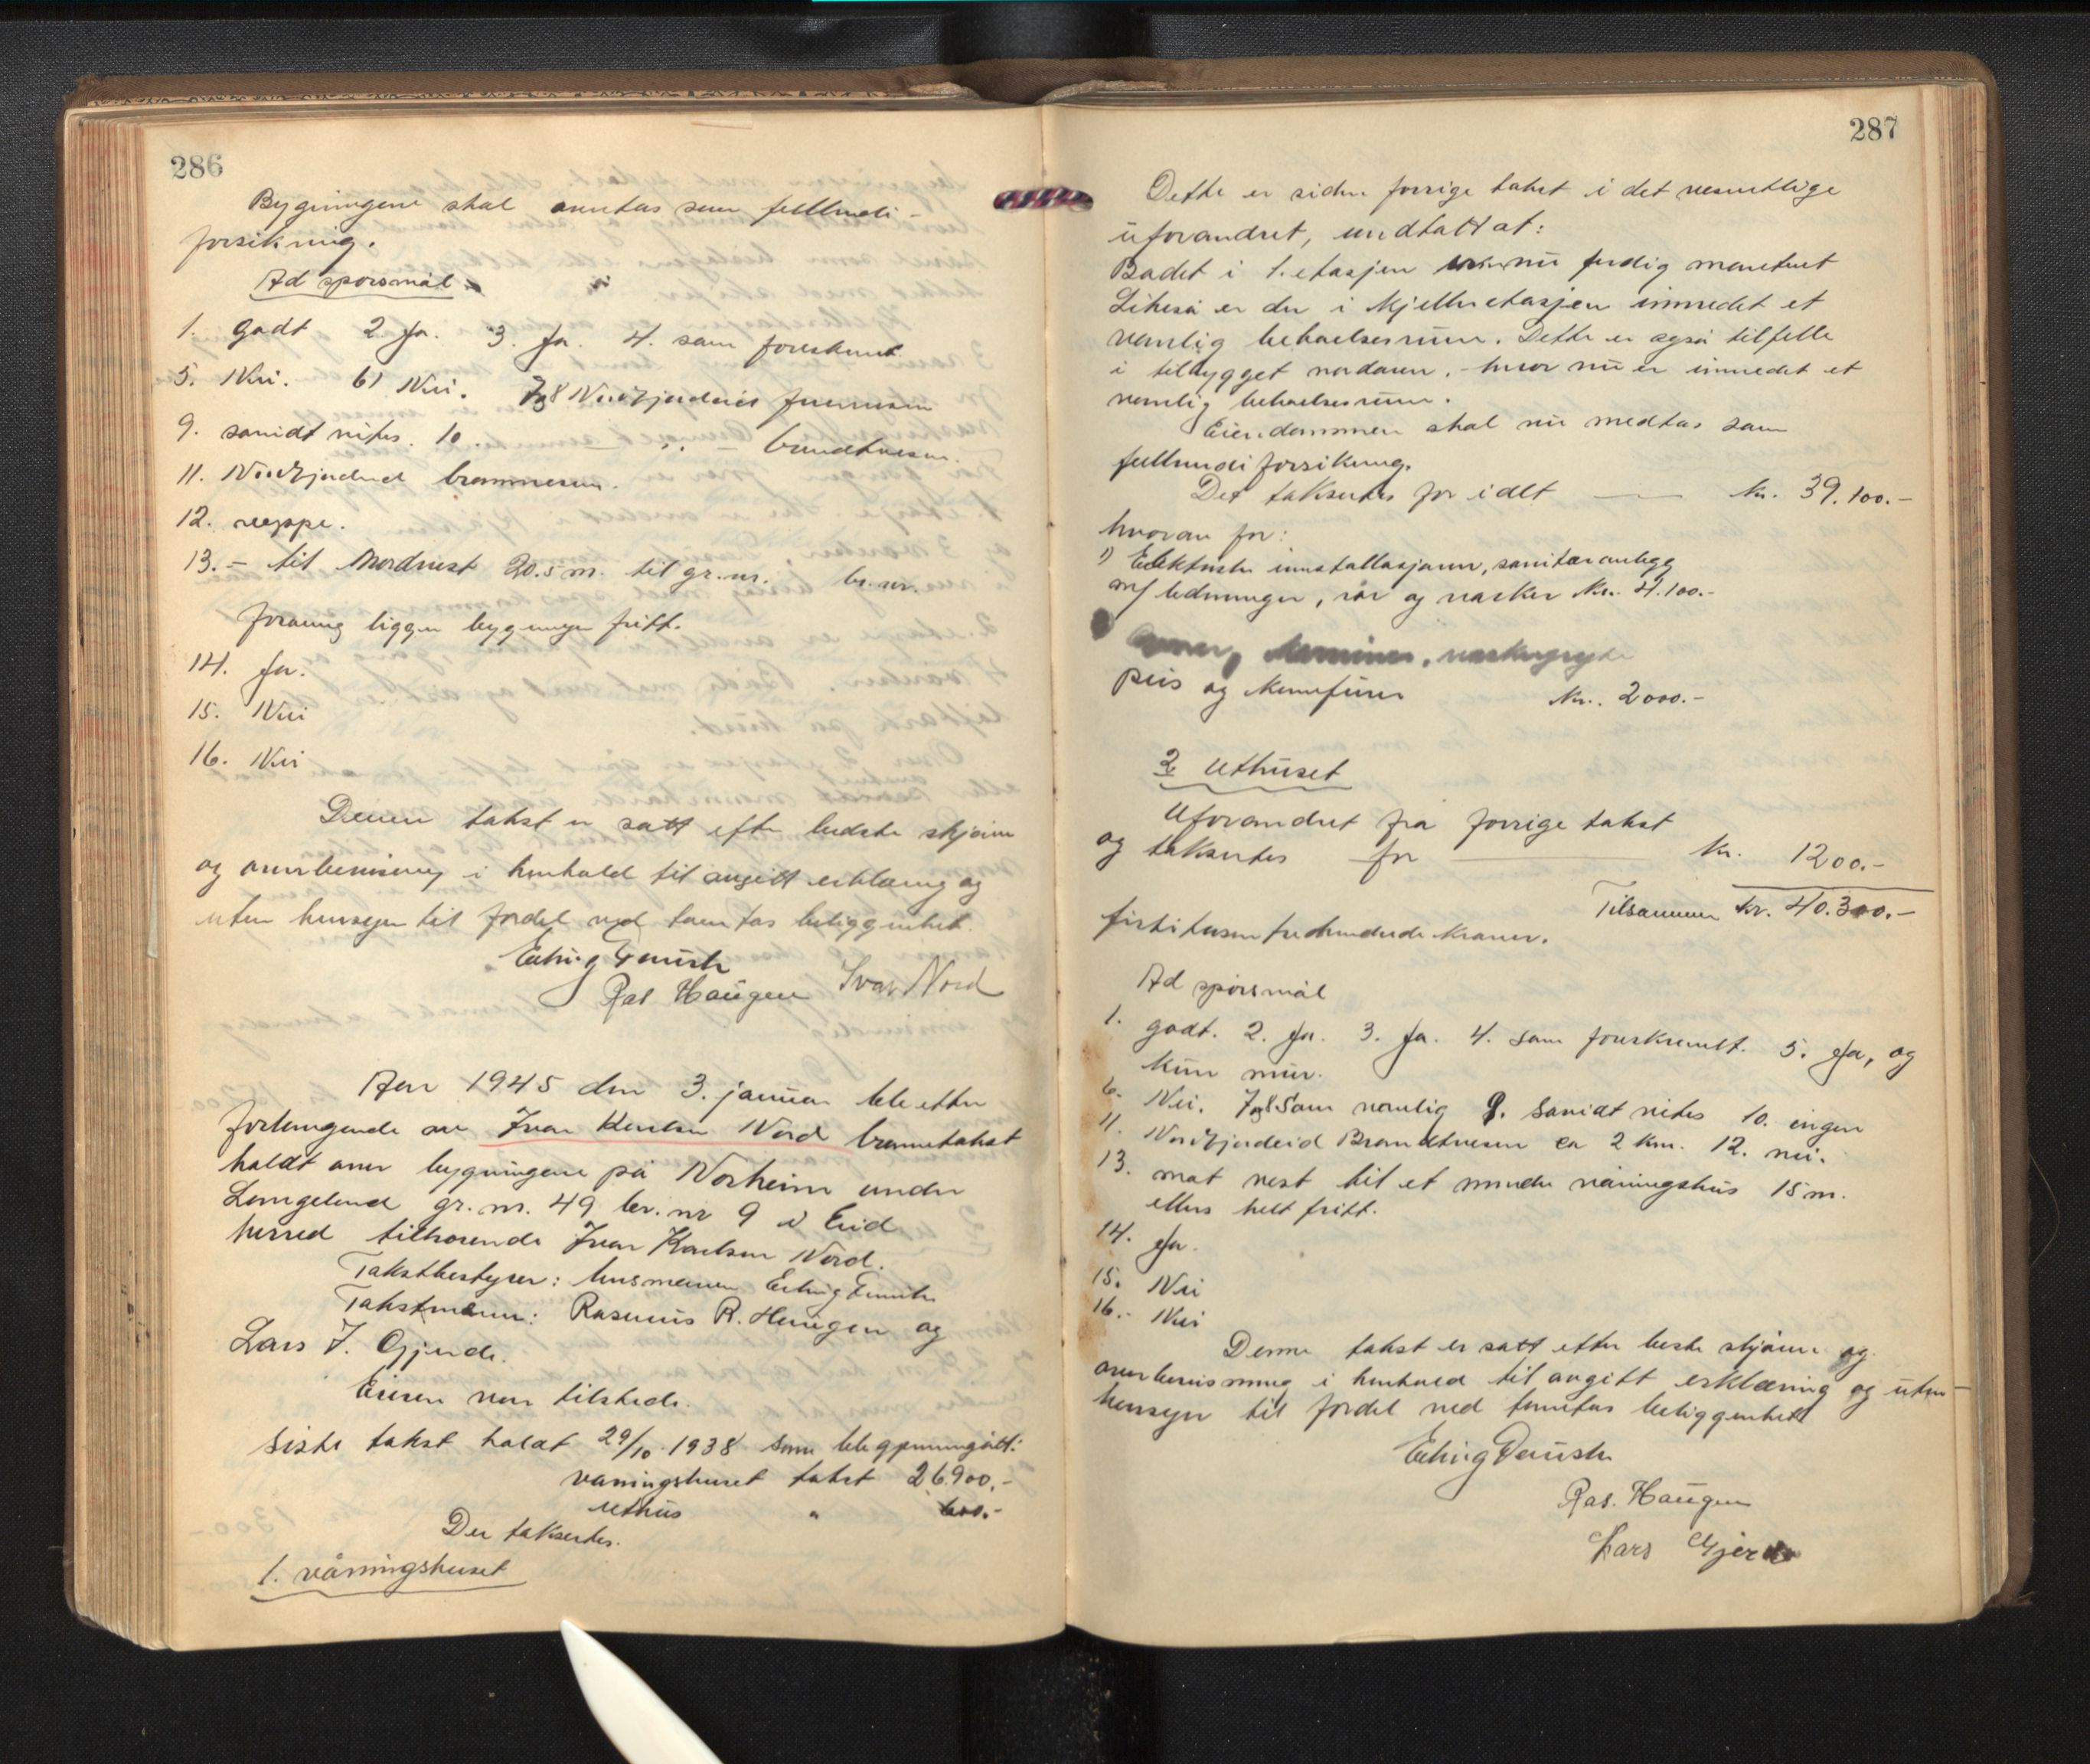 286
Bygningene skal anntas som fullverdi-
forsikring.
Ad spørsmål
1. godt 2 Ja. 3. Ja. 4. som foreskrevet
5. Nei. 6) Nei. 7 og 8 Nordfjordeid
9. sanidt vites. 10. — " —
11. Nordfjordeid brannvesen.
12. neppe.
13. - til Nordvest 20.5 m. til gr.nr. br.nr.
forøvrig ligger bygningen fritt.
14. Ja.
15. Nei
16. Nei
Denne takst er satt efter bedste skjønn
og overbevisning i henhold til avgitt erklæring og
uten hensyn til fordel ved tomtas beliggenhet.
Ras Haugen Ivar Nord
Aar 1945 den 3. januar ble etter
forlangende av Ivar Karlsen Nord branntakst
holdt over bygningene på Norheim under
gr. nr. 49 br. nr 9 i Eid
herred tilhørende Ivar Karlsen Nord.
Takstbestyrer: Erling
Takstmenn: Rasmus R. Haugen og
Lars J. Gjerde.
Eieren var tilstede.
Siste takst holdt 29/10 1938 som ble gjennemgått:
våningshuset takst 26.900.-
uthus "
Der takseertes.
1. våningshuset
287
Dette er siden forrige takst i det vesentlige
uforandret, undtatt at:
Badet i 1. etasjen nu ferdig montert
Likeså er der i kjelleretasjen innredet et
vanlig beboelsesrum. Dette er også tilfelle
i tilbygget nordover, - hvor nu er innredet et
vanlig beboelsesrum.
Eiendommen skal nu medtas som
fullverdiforsikring.
Det takseertes for i alt — Kr. 39.100.-
hvorav for:
1) Elektriske innstallasjoner, sanitæranlegg
m/ ledninger, rør og vasker Kr. 4.100.-
Ovner, kaminer, vaskegryte
peis og Kr. 2000.-
2 Uthuset
Uforandret fra forrige takst
og takseertes for — Kr. 1200.-
Tilsammen Kr. 40.300.-
firtitusen trehundrede kroner.
Ad spørsmål
1. godt. 2. Ja. 3. Ja. 4. som foreskrevet. 5. Ja, og
kun mur.
6. Nei. 7 og 8 som vanlig 9. sanidt vites 10. ingen
11. Nordfjordeid Brandtvesen ca 2 km. 12. nei.
13. mot vest til et mindre våningshus 15 m.
ellers helt fritt.
14. Ja.
15. Nei
16. - Nei
Denne takst er satt etter beste skjønn og
overbevisning i henhold til avgitt erklæring og uten
hensyn til fordel ved tomtas beliggenhet
Ras. Haugen
Lars Gjerde